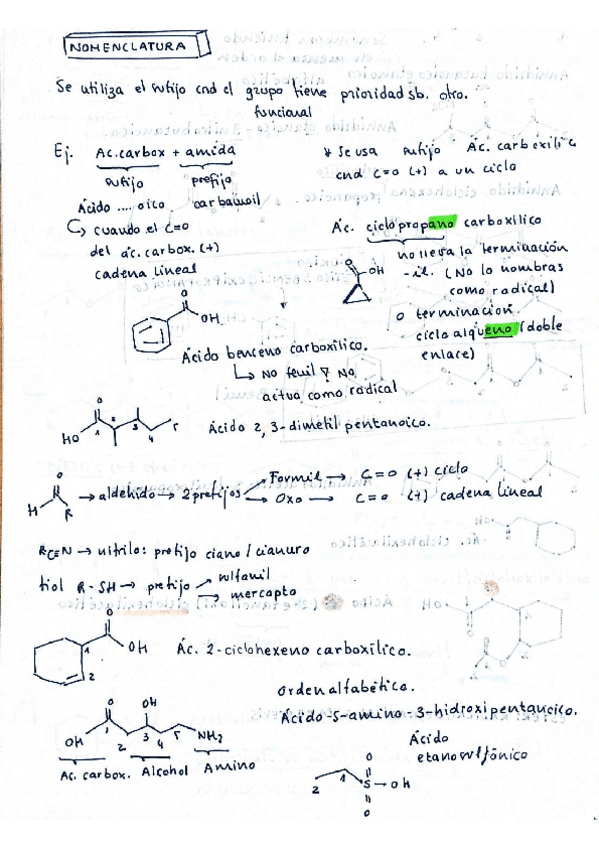 NOMENCLATURA
Se utiliza el sufijo cnd el grupo tiene prioridad sb. otro.
funcional
Ej. Ac.carbox + amida
sufijo prefijo
Ácido .... oico carbamoil
cuando el C=O
del ác. carbox. (+)
cadena lineal
* Se usa sufijo Ác. carboxílic
cnd C=O (+) a un ciclo
Ác. ciclopropano carboxílico
no lleva la terminación
-il. (No lo nombras
como radical)
o terminación.
cicloalqueno (doble
enlace)
O
OH
O
OH
Ácido benceno carboxílico.
↳ No fenil ∇ No
actua como radical
O
HO 1 2 3 4 5
Ácido 2,3-dimetil pentanoico.
O
H R → aldehído → 2 prefijos
Formil → C=O (+) ciclo
Oxo → C=O (+) cadena lineal
RC≡N → nitrilo: prefijo ciano / cianuro
tiol R-SH → prefijo
sulfanil
mercapto
O
OH
1
2
Ác. 2-ciclohexeno carboxílico.
Orden alfabético.
Ácido-5-amino-3-hidroxipentanoico.
O OH
OH 1 2 3 4 5 NH2
Ac. carbox. Alcohol Amino
Ácido
etanosulfónico
O
2 1 S-OH
O